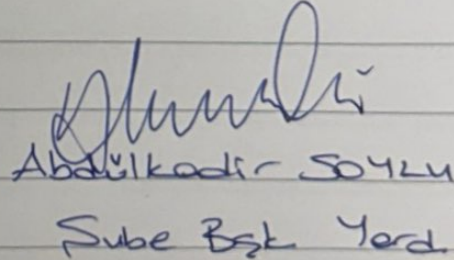 Abdülkadir SOYLU
Şube Bşk Yard